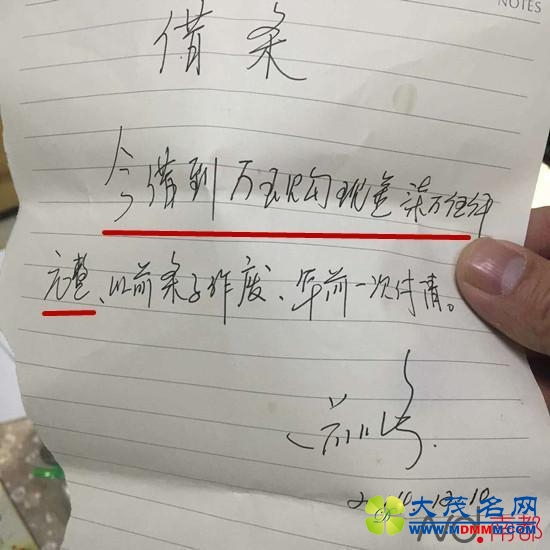 NOTES
借条
今借到万现勾现金柒万伍仟
元整、以前条子作废、年前一次付清。
10.12.10
大茂名网
MDMMM.COM
南都